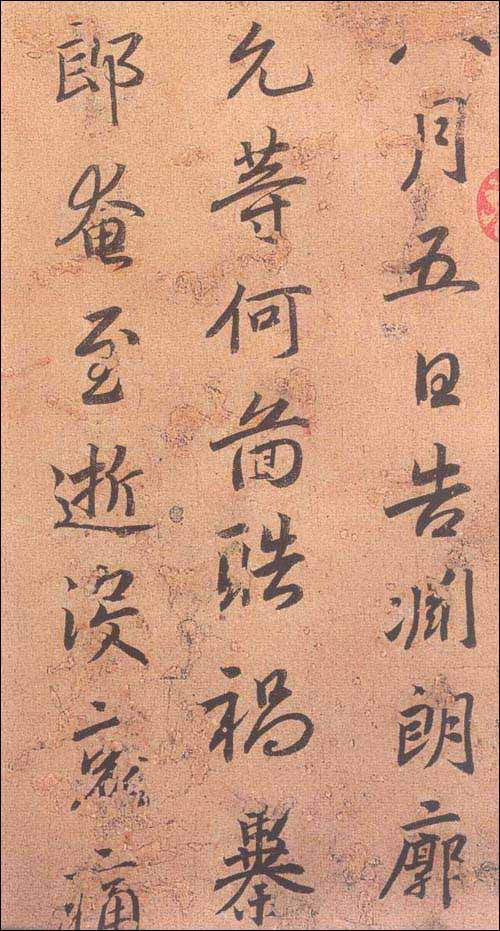 八月五日告淵朗廓
允等何啚酷禍暴
郎奄至逝没哀痛